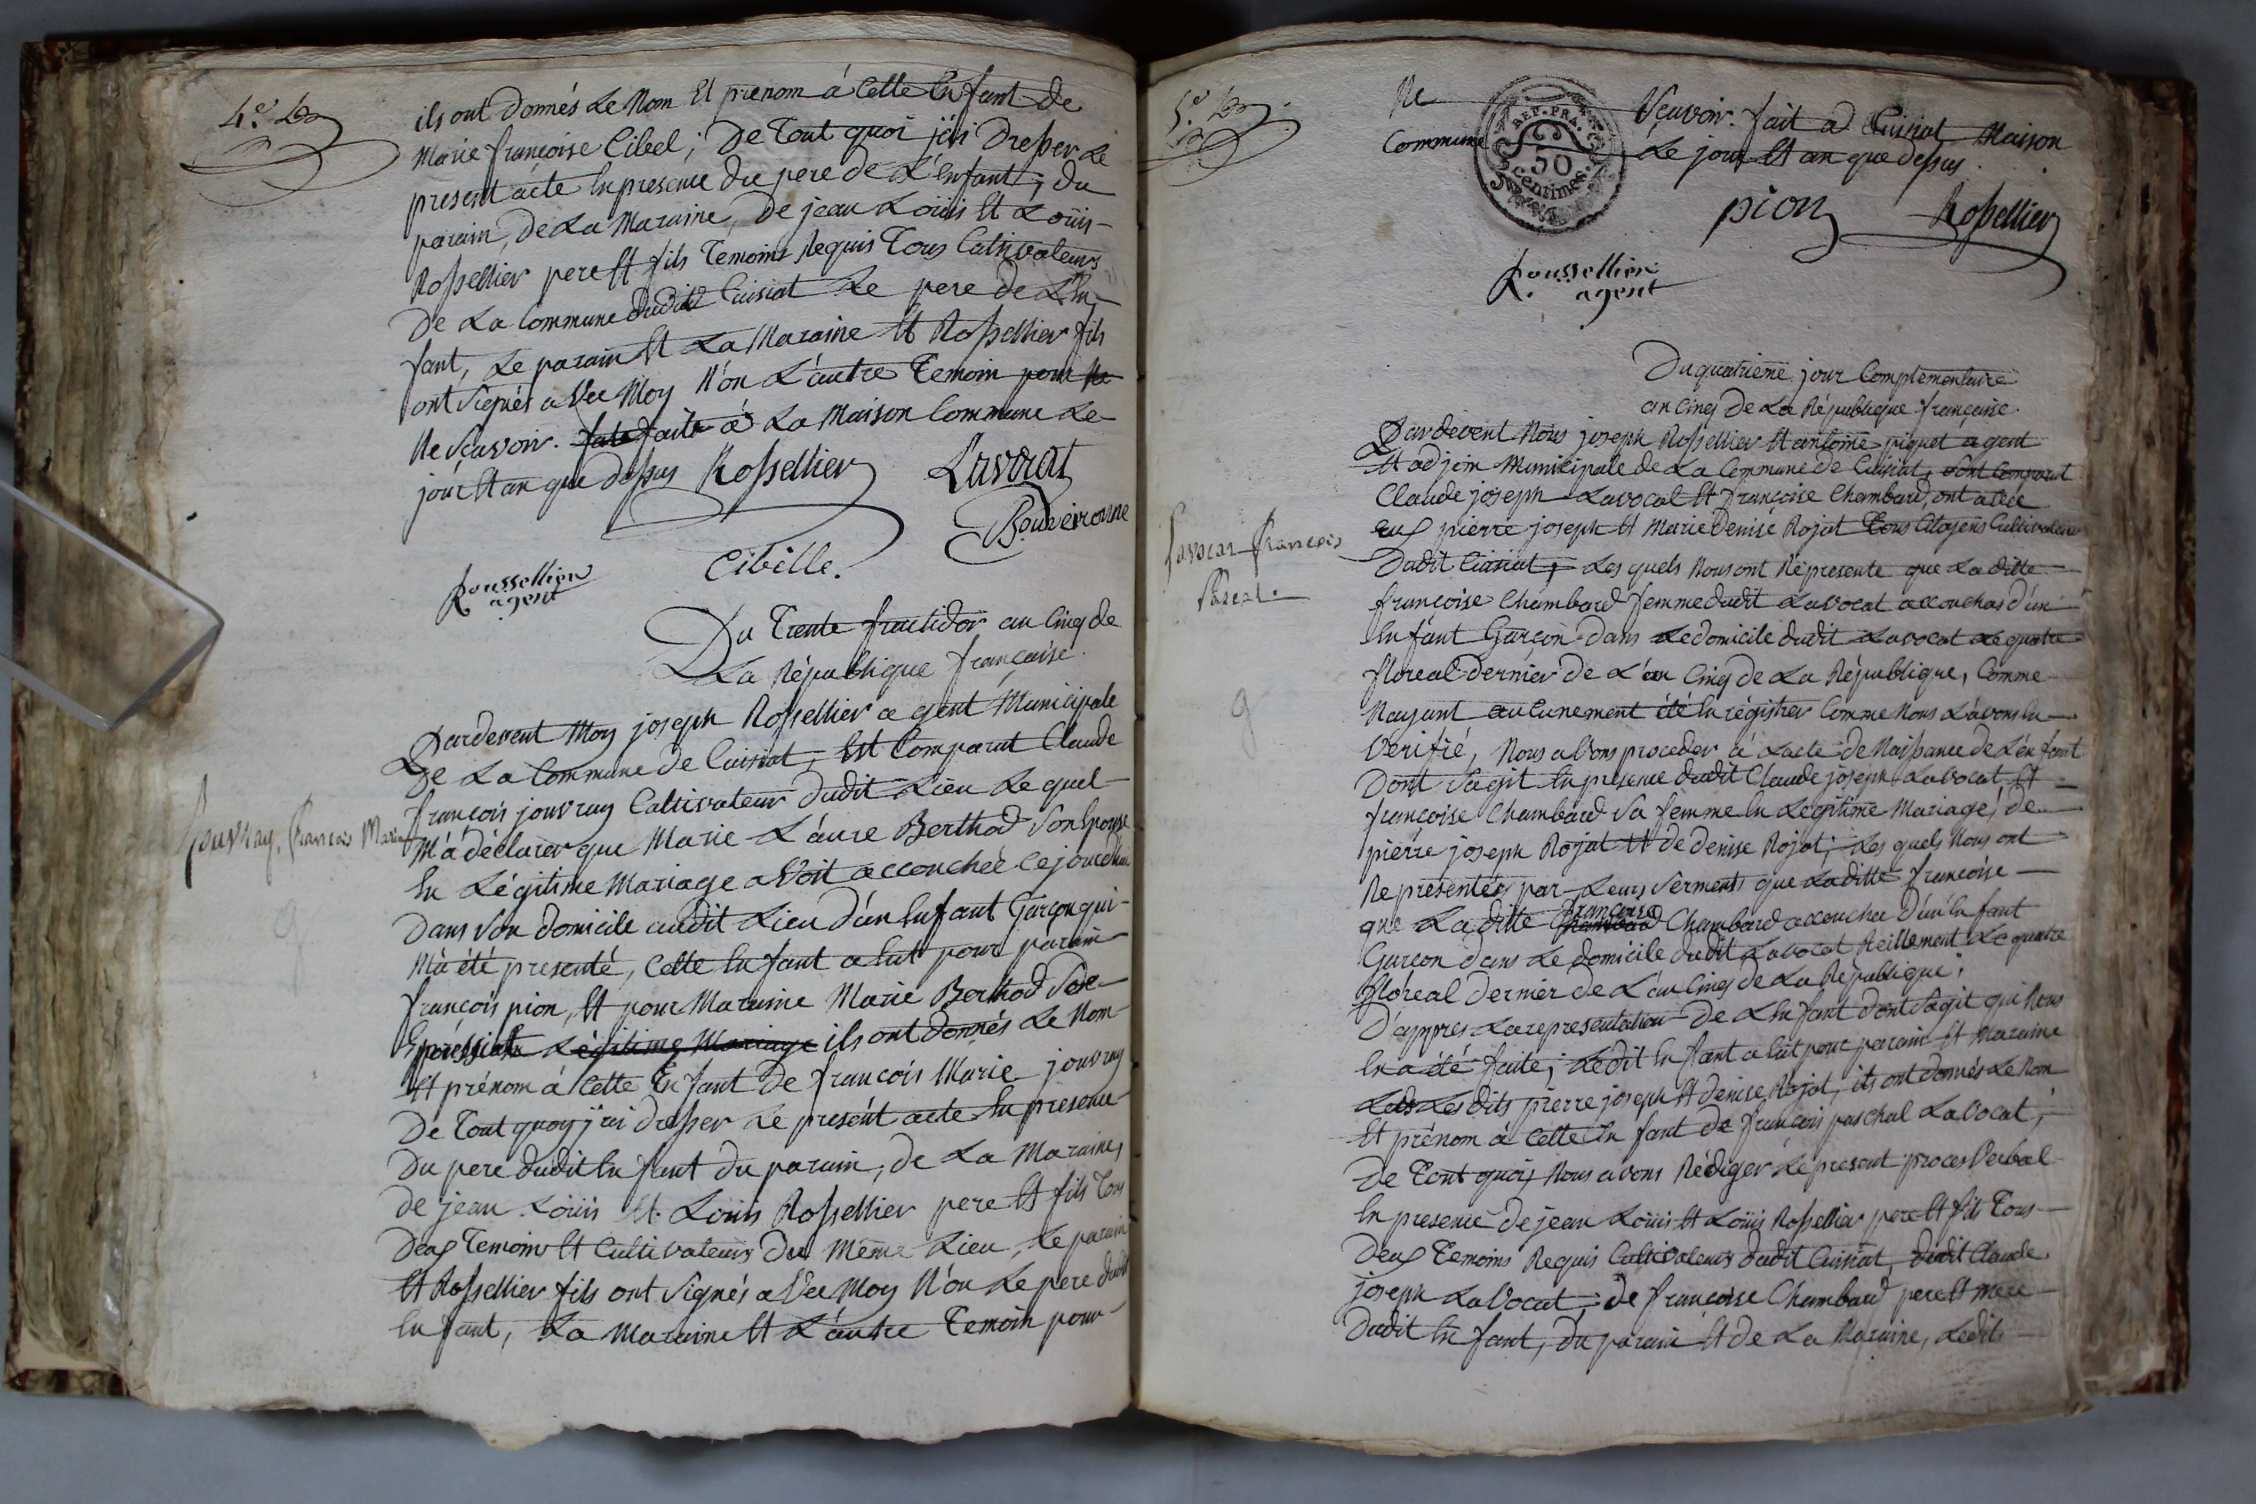 4.e
ils ont donnés Le Nom Et prenom á Cette Enfant de
Marie françoise Cibel; De Tout quoi j'ai Dresser Le
present acte En presence du pere de L'Enfant; du
parain, de La Maraine, De jean Loüis Et Loüis
Rossellier pere Et fils Temoins Requis Tous Cultivateurs
De La Commune dudit Cuisiat Le pere de L'En-
fant, Le parain Et La Maraine Et Rossellier fils
ont signés avec Moy N'on L'autre Temoin pour Ne
Ne sçavoir. faite faite á La Maison Commune Le
jour Et an que dessus Rossellier Lavocat
Bouveironne
Cibelle.
Roussellier
agent
Du Trente fructidor an Cinq de
La République française.
Pardevent Moy joseph Rossellier agent Municipale
De La Commune de Cuisiat, Est Comparut Claude
françois jouvray Cultivateur dudit Lieu Le quel
M'á déclarer que Marie L'áure Berthod son Epouse
En Légitime Mariage avoit accouchée Cejourdhui
Dans son domicile audit Lieu d'un Enfant Garçon qui
M'á été presenté, Cette Enfant a Eut pour parain
françois pion, Et pour Maraine Marie Berthod
Légitime Mariage ils ont donnés Le Nom
Et prénom á Cette Enfant de françois Marie jouvray
De Tout quoy j'ai dresser Le présent acte En presence
Du pere dudit Enfant du parain, de La Maraine,
de jean Loüis Et Loüis Rossellier pere Et fils Tous
Deux Temoins Et Cultivateurs du Même Lieu, Le parain
Et Rossellier fils ont signés avec Moy N'on Le pere dudit
Enfant, La Maraine Et L'autre Temoin pour
Jouvray. françois Marie
g
5.e
Ne sçavoir. fait a Cuisiat Maison
Commune Le jour Et an que dessus
REP. FRA.
50
centimes.
pion Rossellier
Roussellier
agent
Du quatriéme jour Complémentaire
an Cinq de La République française.
Pardevent Nous joseph Rossellier Et antoine piquet agent
Et adjoin Municipale de La Commune de Cuisiat, sont Comparut
Claude joseph Lavocat Et françoise Chambard, ont avec
eux pierre joseph Et Marie Denise Rojat Tous Citoyens Cultivateurs
Dudit Cuisiat, Les quels Nous ont Représente que La ditte
françoise Chambard femme dudit Lavocat accouchas d'un
Enfant Garçon dans Le domicile dudit Lavocat Le quatre
floreal dernier de L'an Cinq de La République, Comme
Nayant aucunement été Enregistrer Comme Nous L'avons En
Verifié, Nous avons proceder á L'acte de Naissance de L'enfant
Dont s'agit En presence dudit Claude joseph Lavocat Et
françoise Chambard sa femme En Légitime Mariage, de
pierre joseph Rojat Et de denise Rojat; Les quels Nous ont
Représentées par Leurs serments que Laditte françoise
que La ditte Chambard françoise Chambard accouchee d'un Enfant
Garçon dans Le domicile dudit Lavocat Reellement Le quatre
floreal dernier de L'an Cinq de La République;
D'appres La représentation de L'Enfant dont s'agit qui Nous
En a été faite; Ledit Enfant a Eut pour parain Et Maraine
Led Lesdits pierre joseph Et denise Rojat, ils ont donnés Le Nom
Et prénom á Cette Enfant de françois paschal Lavocat;
De Tout quoi, Nous avons Rédiger Le present proces Verbal
En presence de jean Loüis Et Loüis Rossellier pere Et fils Tous
Deux Temoins Requis Cultivateurs dudit Cuisiat, dudit Claude
joseph Lavocat, de françoise Chambard pere Et mere
Dudit Enfant, du parain Et de La Maraine, Ledit
Lavocat françois
Pascal.
g